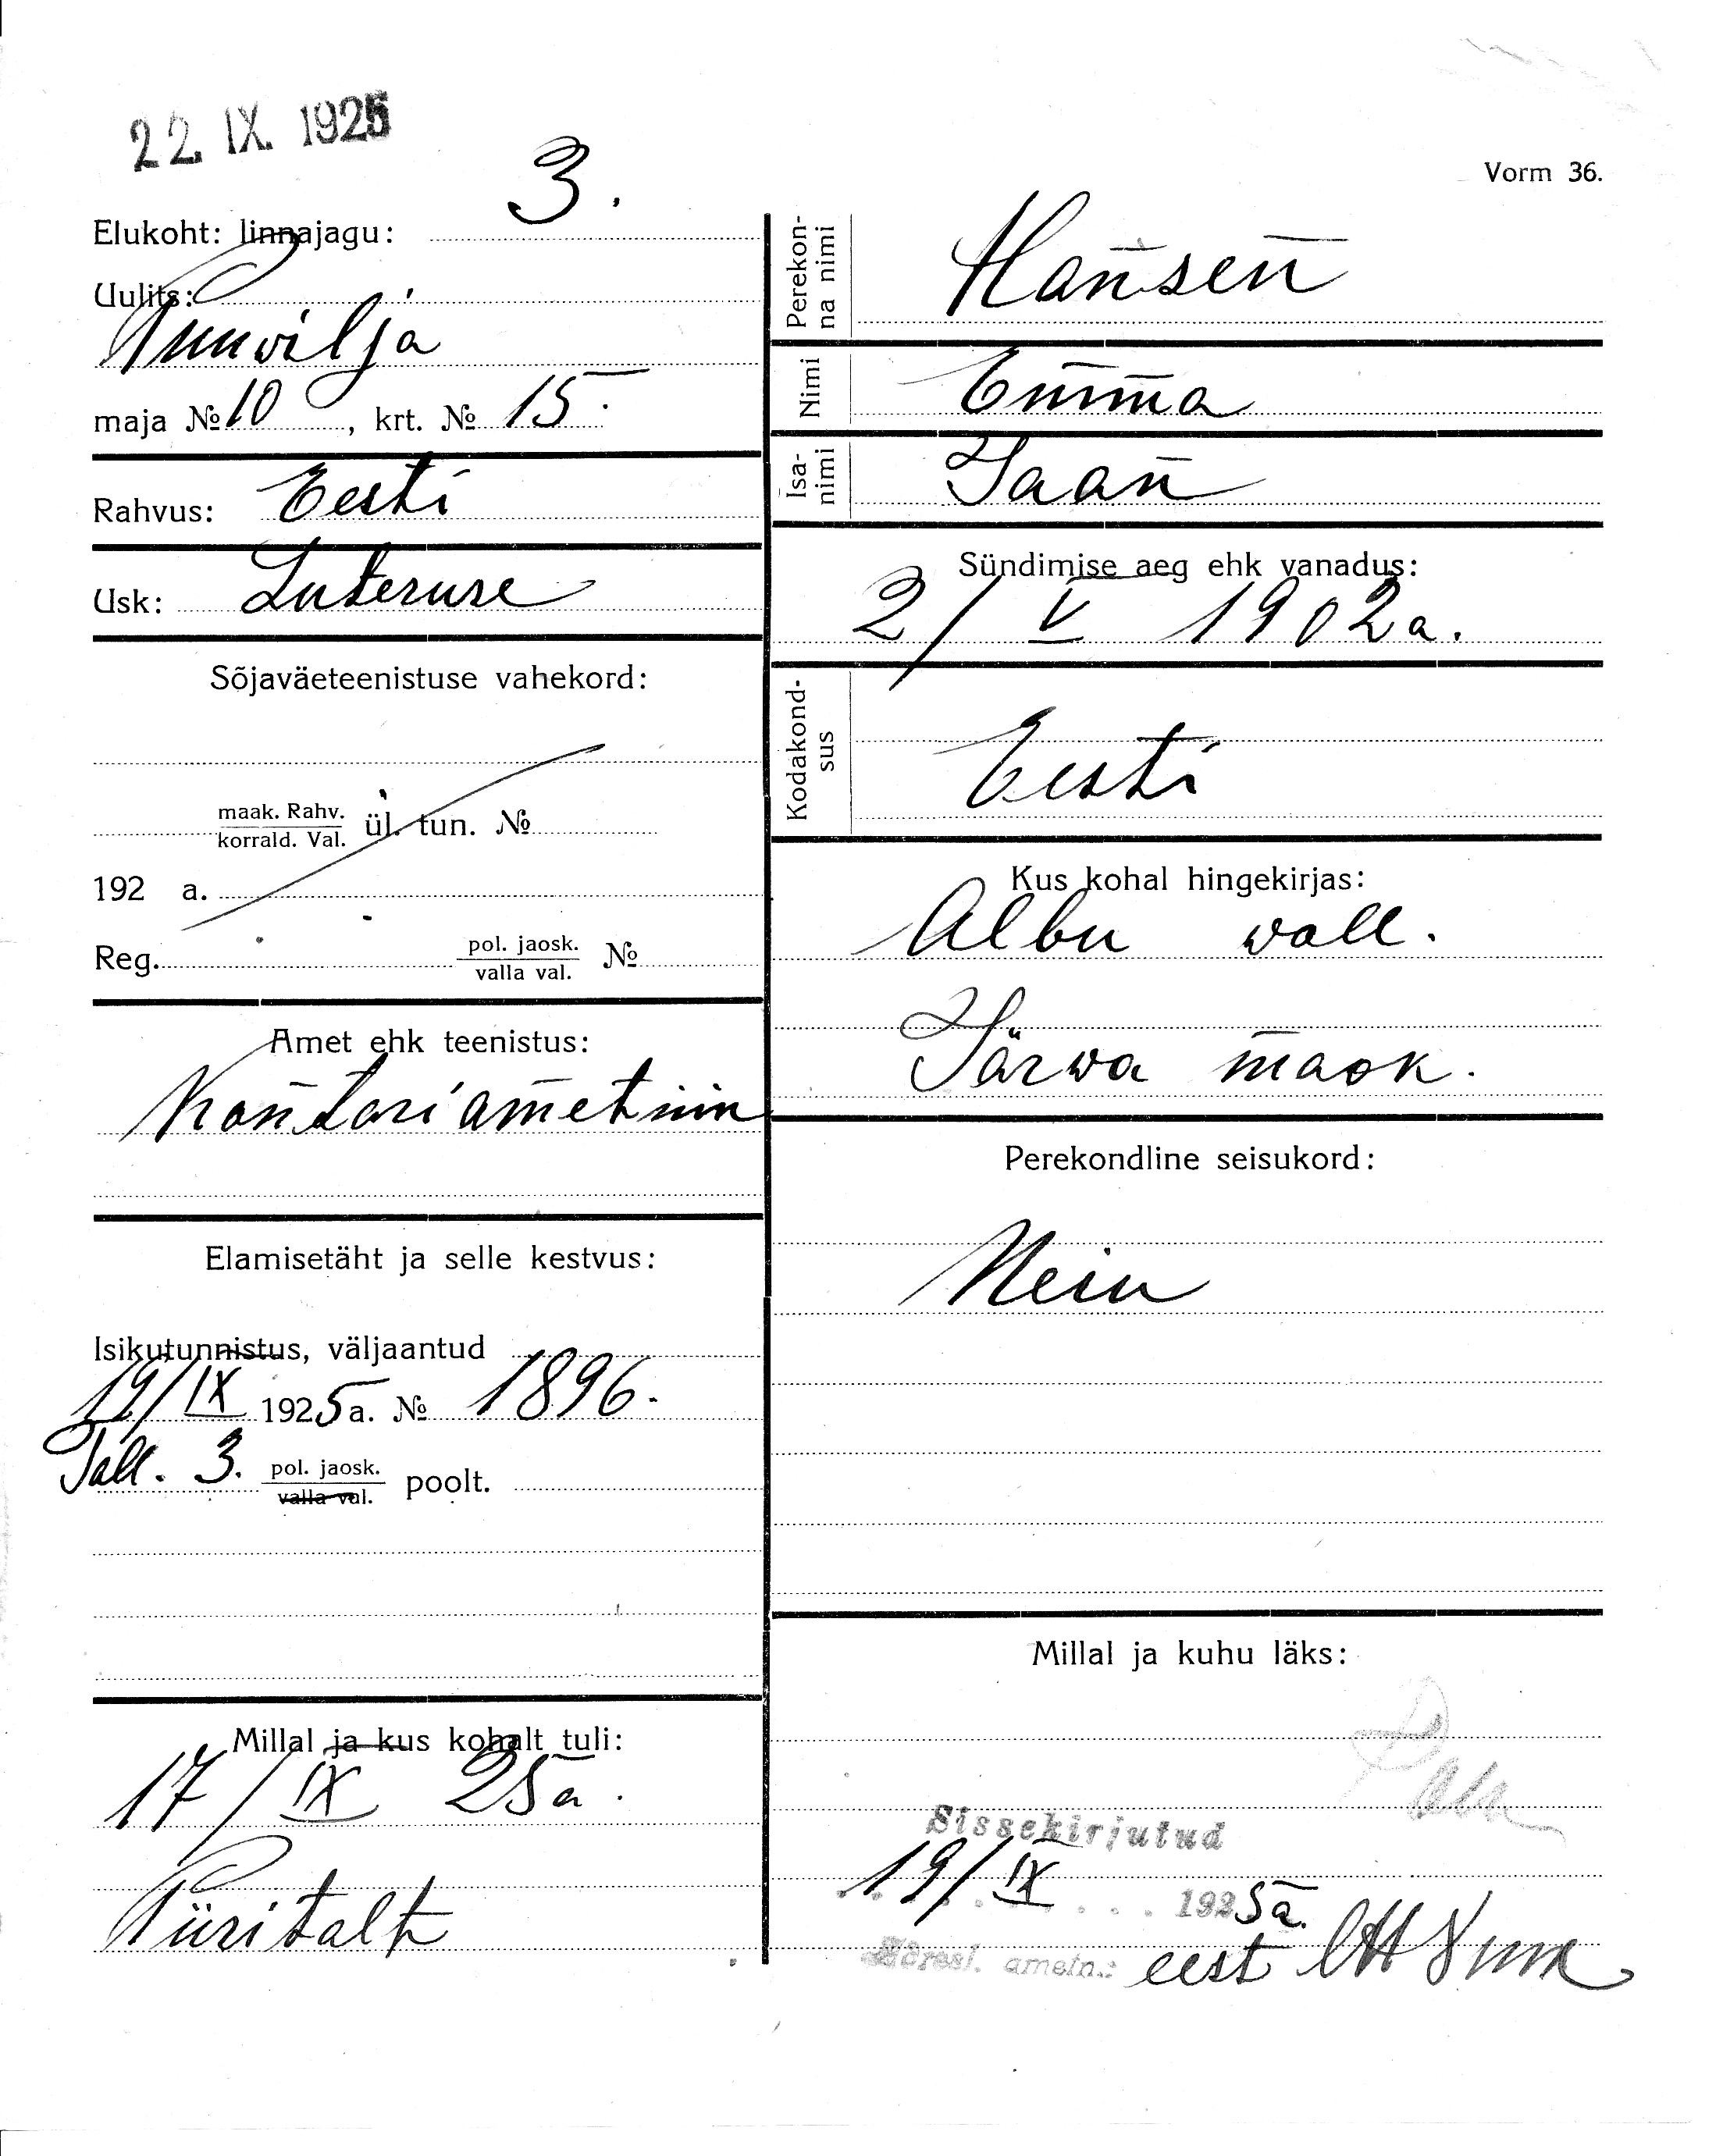 22. IX. 1925
Vorm 36.
3.
Elukoht: linnajagu:
Uulits:
Puuvilja
maja № 10, krt. № 15.
Rahvus: Eesti
Usk: Luteruse
Sõjaväeteenistuse vahekord:
maak. Rahv.
korrald. Val. ül. tun. №
192 a.
Reg. pol. jaosk.
valla val. №
Amet ehk teenistus:
Kontori ametnin
Elamisetäht ja selle kestvus:
Isikutunnistus, väljaantud
19/IX 1925 a. № 1896.
Tall. 3. pol. jaosk.
valla val. poolt.
Millal ja kus kohalt tuli:
17/IX 25 a.
Piiritalt
Perekon-
na nimi
Hansen
Nimi
Emma
Isa-
nimi
Jaan
Sündimise aeg ehk vanadus:
2/V 1902 a.
Kodakond-
sus
Eesti
Kus kohal hingekirjas:
Albu wall.
Järwa maak.
Perekondline seisukord:
Neiu
Millal ja kuhu läks:
Sissekirjutud
19/IX 1925 a.
Adresl. ametn.: eest